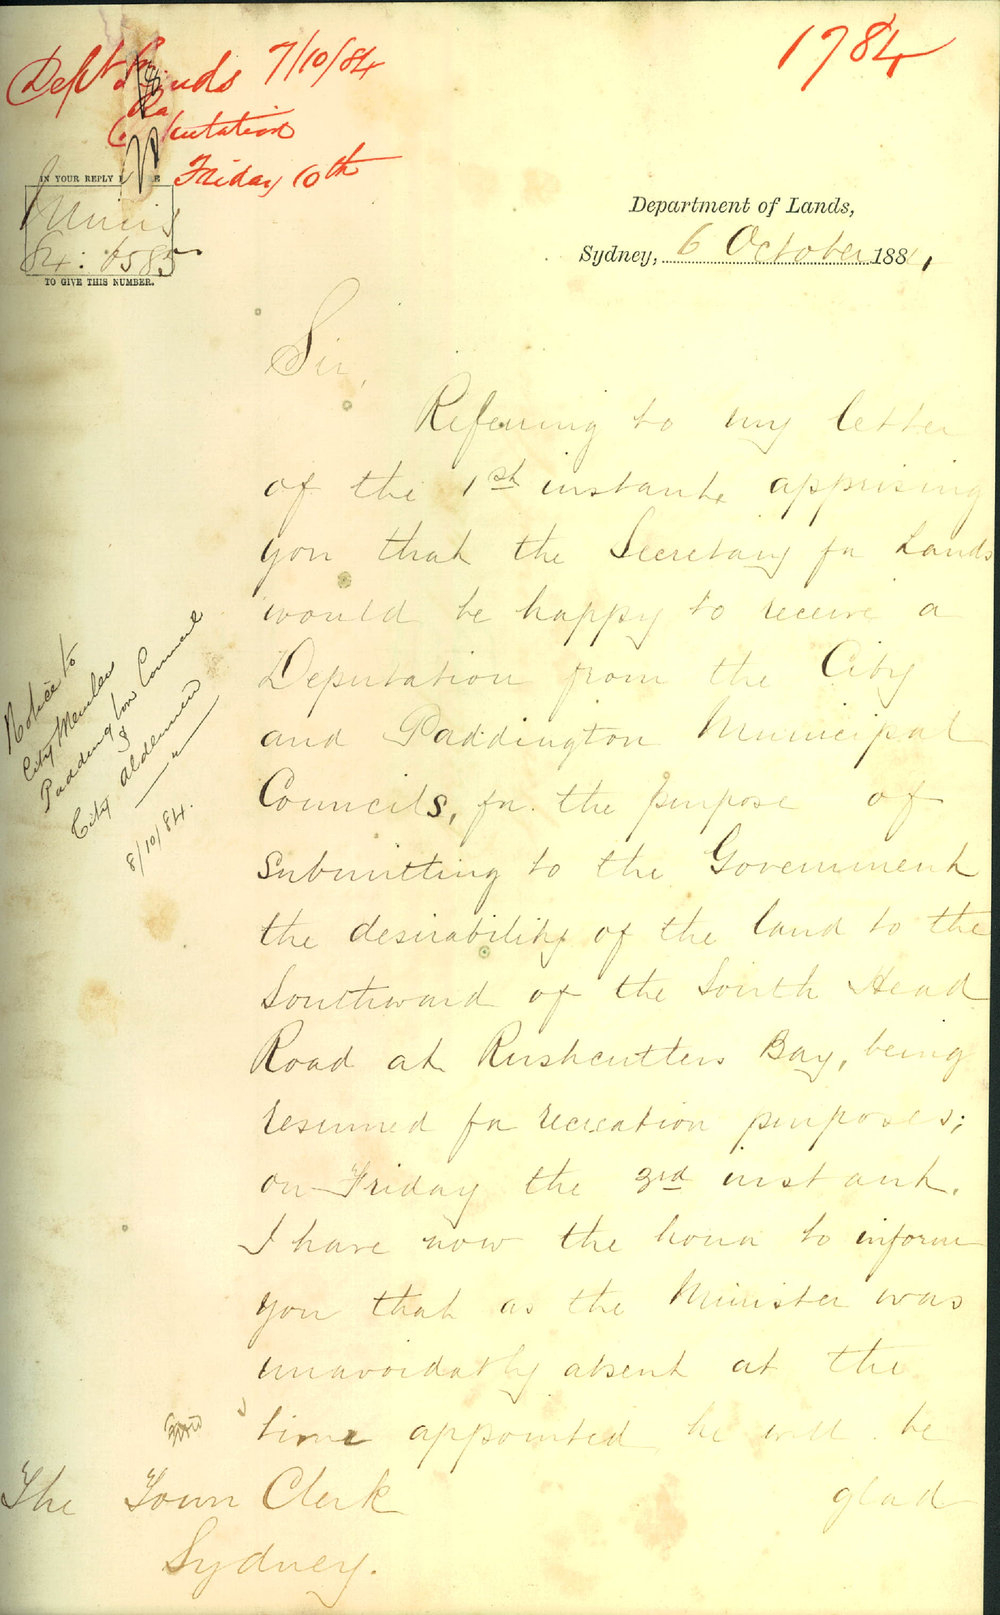 1784
Dept Lands 7/10/84
Deputation
Friday 10th
IN YOUR REPLY
Miscs
84: 6585
TO GIVE THIS NUMBER.
Department of Lands,
Sydney, 6 October 1884,
Sir,
Referring to my letter
of the 1st instant, apprising
you that the Secretary for Lands
would be happy to receive a
Deputation from the City
and Paddington Municipal
Councils, for the purpose of
submitting to the Government
the desirability of the land to the
Southward of the South Head
Road at Rushcutters Bay, being
resumed for recreation purposes;
on Friday the 3rd instant.
I have now the honor to inform
you that as the Minister was
unavoidably absent at the
time appointed he will be
glad
The Town Clerk
Sydney.
Notice to
City Members
Paddington Council
&
City Aldermen
8/10/84.